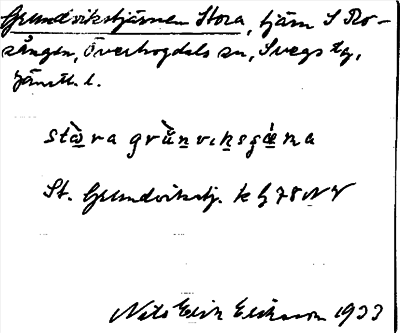 Grundvikstjärnen Stora, tjärn S Ro-
sången, Överhogdals sn, Svegs tg,
Jämtl. l.
stọ̀ra grùnviksgǽna
St. Grundvikstj. k bl 78 NV
Nils Erik Eriksson 1933